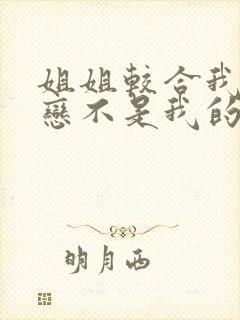 姐姐較合我
戀不是我的
明月西